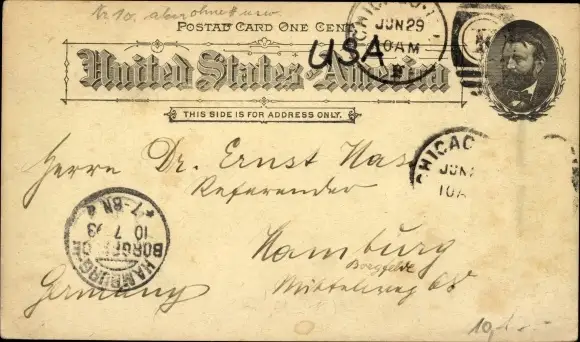 Nr 10. aber ohne
POSTAL CARD ONE CENT
USA
CHICAGO
JUN 29
10AM
United States of America
THIS SIDE IS FOR ADDRESS ONLY.
Herrn Dr. Ernst Has
CHICAGO
JUN
10A
Referendar
Hamburg
Borgfelde
Mittelweg
Germany
HAMBURG
BORGFELD
10 7 93
*7-8N
10,